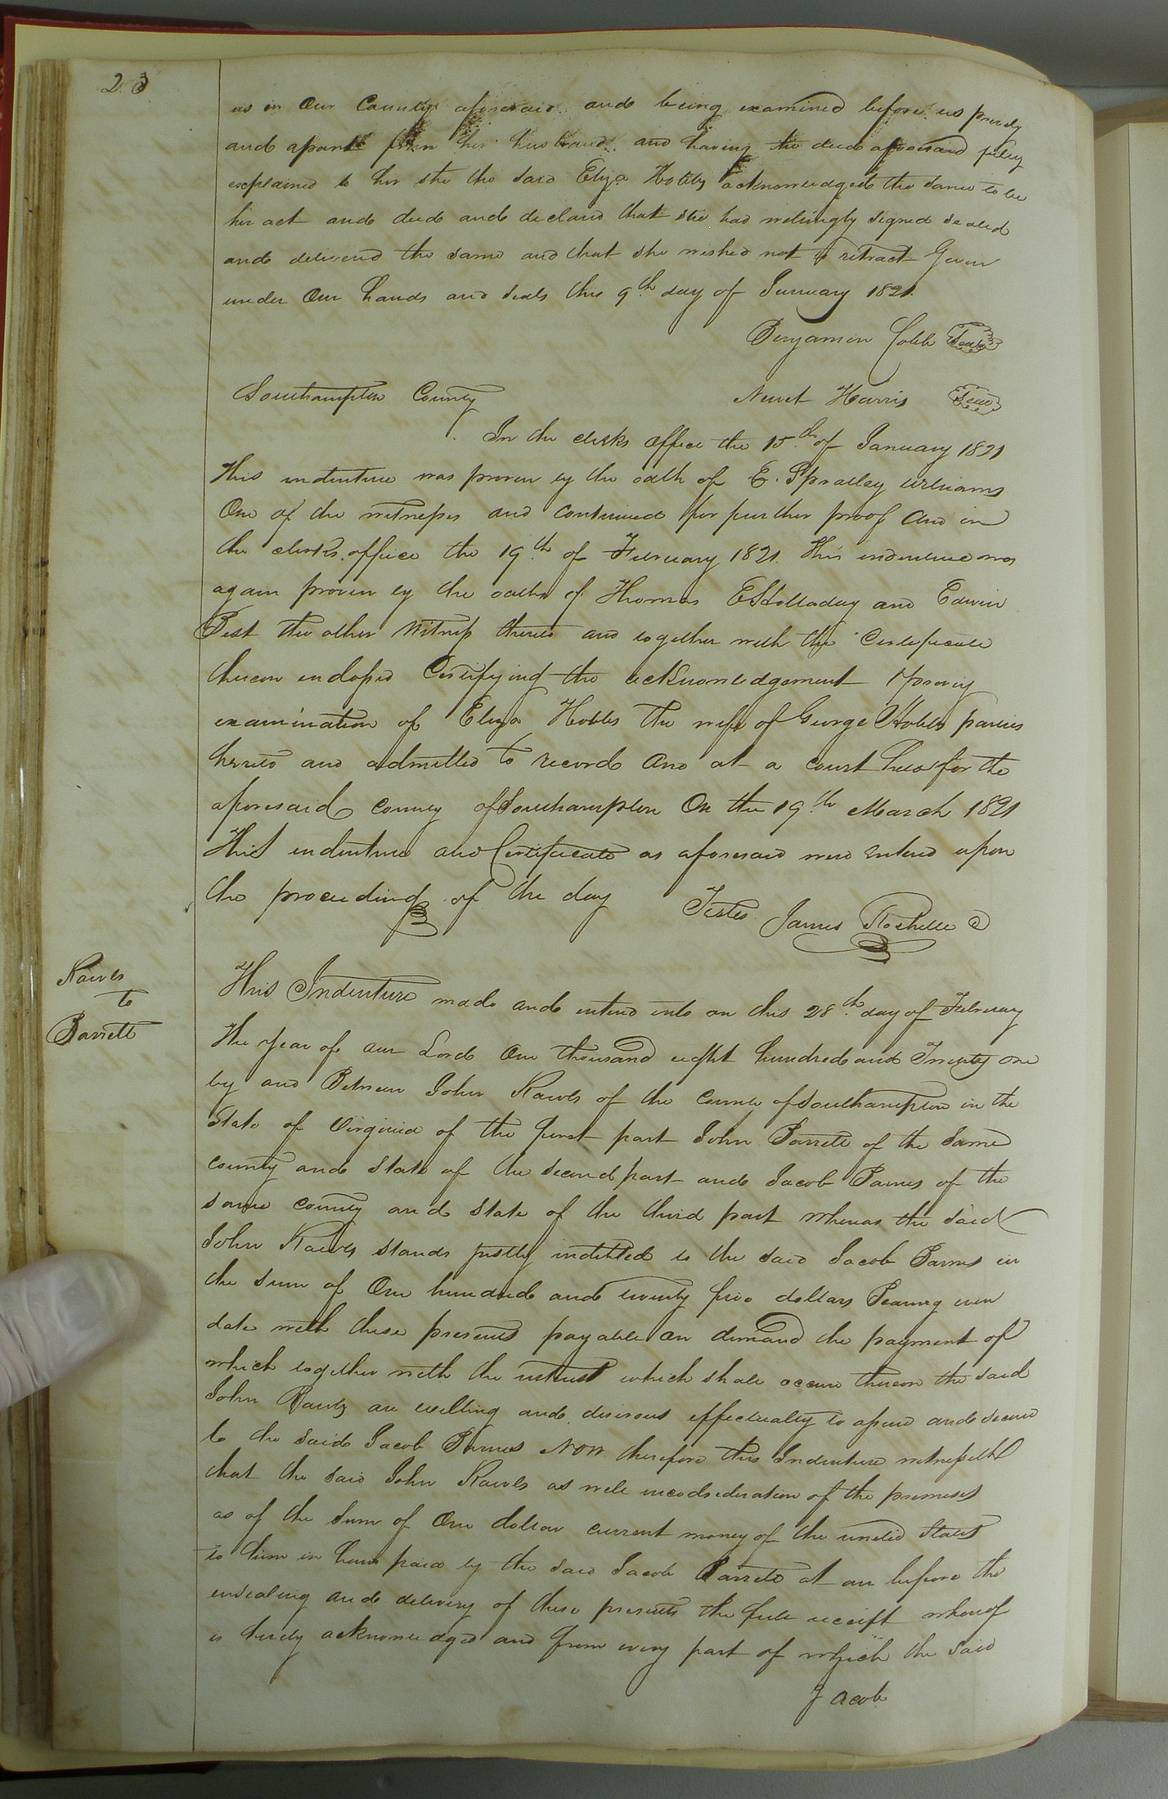 23
as in Our County aforesaid and being examined before us privily
and apart from her husband and having the deed aforesaid fully
explained to her she the said Eliza Hobbs acknowledged the same to be
her act and deed and declared that she had willingly signed sealed
and delivered the same and that she wished not to retract Given
under Our hands and seals this 9th day of January 1821
Benjamin Cobb Seal
Southampton County Newit Harris Seal
In the clerks office the 15th of January 1821
This indenture was proven by the oath of E. Spratley Williams
One of the witnesses and continued for further proof And in
the clerks office the 19th of February 1821 This indenture was
again proven by the oaths of Thomas E Holladay and Edwin
Pest the other Witness thereto and together with the Certificate
thereon endorsed Certifying the acknowledgement & privy
examination of Eliza Hobbs the wife of George Hobbs parties
hereto and admitted to record And at a court held for the
aforesaid county of Southampton On the 19th March 1821
This indenture and Certificate as aforesaid were Entered upon
the proceedings of the day Teste James Rochelle C
Rawls
to
Barrett
This Indenture made and entered into on this 28th day of February
The year of our Lord One thousand eight hundred and Twenty one
by and Between John Rawls of the County of Southampton in the
State of Virginia of the first part John Barrett of the Same
County and State of the second part and Jacob Barnes of the
same county and State of the third part whereas the said
John Rawls stands justly indebted to the said Jacob Barnes in
the sum of One hundred and twenty five dollars Bearing even
date with these presents payable on demand the payment of
which together with the interest which shall accrue thereon the said
John Rawls are willing and desirous effectually to assure and secure
to the said Jacob Barnes Now therefore this Indenture witnesseth
that the said John Rawls as well in consideration of the premises
as of the sum of One dollar current money of the united States
to him in hand paid by the said Jacob Barrett at or before the
ensealing and delivery of these presents the full receipt whereof
is hereby acknowledged and from every part of which the said
Jacob